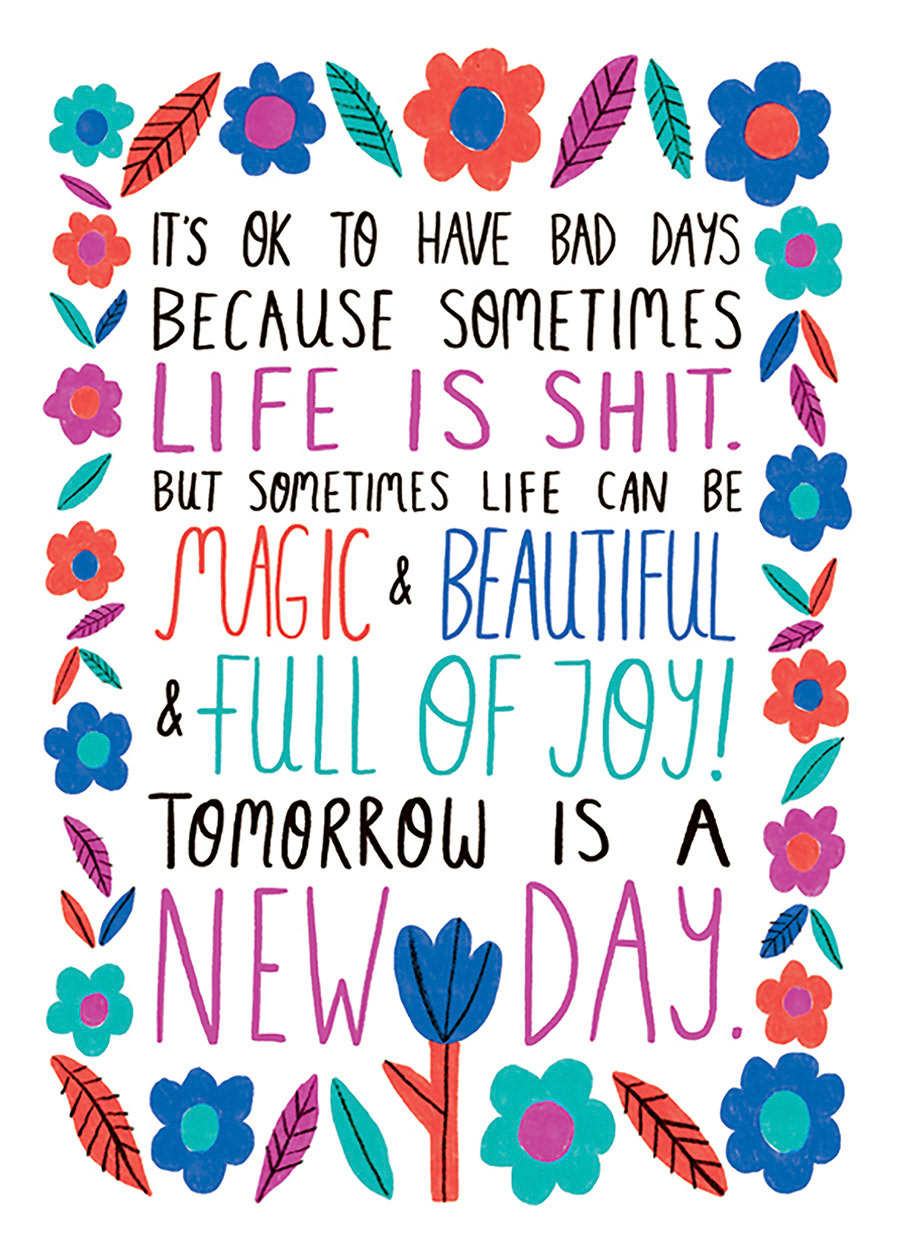 IT'S OK TO HAVE BAD DAYS
BECAUSE SOMETIMES
LIFE IS SHIT.
BUT SOMETIMES LIFE CAN BE
MAGIC & BEAUTIFUL
& FULL OF JOY!
TOMORROW IS A
NEW DAY.